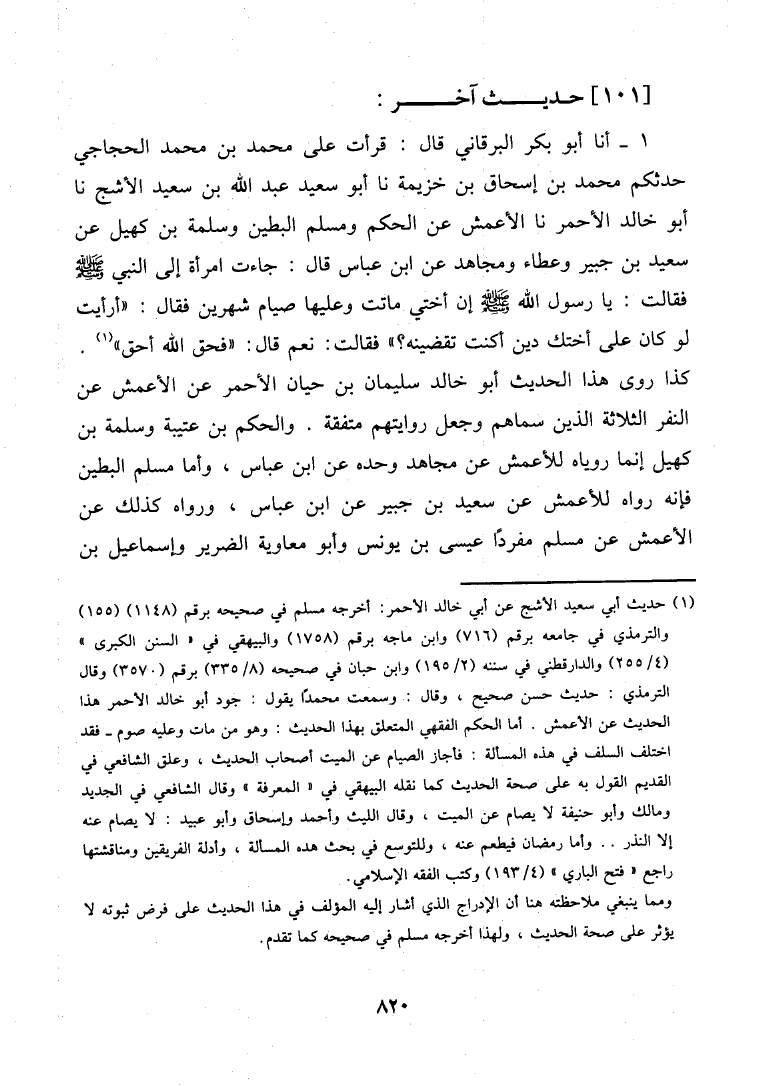 [١٠١] حـديـــــث آخـــــــر :
١ - أنا أبو بكر البرقاني قال : قرأت على محمد بن محمد الحجاجي
حدثكم محمد بن إسحاق بن خزيمة نا أبو سعيد عبد الله بن سعيد الأشج نا
أبو خالد الأحمر نا الأعمش عن الحكم ومسلم البطين وسلمة بن كهيل عن
سعيد بن جبير وعطاء ومجاهد عن ابن عباس قال : جاءت امرأة إلى النبي ﷺ
فقالت : يا رسول الله ﷺ إن أختي ماتت وعليها صيام شهرين فقال : «أرأيت
لو كان على أختك دين أكنت تقضينه؟» فقالت: نعم قال: «فحق الله أحق»(١) .
كذا روى هذا الحديث أبو خالد سليمان بن حيان الأحمر عن الأعمش عن
النفر الثلاثة الذين سماهم وجعل روايتهم متفقة . والحكم بن عتيبة وسلمة بن
كهيل إنما روياه للأعمش عن مجاهد وحده عن ابن عباس ، وأما مسلم البطين
فإنه رواه للأعمش عن سعيد بن جبير عن ابن عباس ، ورواه كذلك عن
الأعمش عن مسلم مفردًا عيسى بن يونس وأبو معاوية الضرير وإسماعيل بن
(١) حديث أبي سعيد الأشج عن أبي خالد الأحمر: أخرجه مسلم في صحيحه برقم (١١٤٨) (١٥٥)
والترمذي في جامعه برقم (٧١٦) وابن ماجه برقم (١٧٥٨) والبيهقي في « السنن الكبرى »
(٢٥٥/٤) والدارقطني في سننه (١٩٥/٢) وابن حبان في صحيحه (٣٣٥/٨) برقم (٣٥٧٠) وقال
الترمذي : حديث حسن صحيح ، وقال : وسمعت محمدًا يقول : جود أبو خالد الأحمر هذا
الحديث عن الأعمش . أما الحكم الفقهي المتعلق بهذا الحديث : وهو من مات وعليه صوم - فقد
اختلف السلف في هذه المسألة : فأجاز الصيام عن الميت أصحاب الحديث ، وعلق الشافعي في
القديم القول به على صحة الحديث كما نقله البيهقي في « المعرفة » وقال الشافعي في الجديد
ومالك وأبو حنيفة لا يصام عن الميت ، وقال الليث وأحمد وإسحاق وأبو عبيد : لا يصام عنه
إلا النذر .. وأما رمضان فيطعم عنه ، وللتوسع في بحث هده المسألة ، وأدلة الفريقين ومناقشتها
راجع « فتح الباري » (١٩٣/٤) وكتب الفقه الإسلامي.
ومما ينبغي ملاحظته هنا أن الإدراج الذي أشار إليه المؤلف في هذا الحديث على فرض ثبوته لا
يؤثر على صحة الحديث ، ولهذا أخرجه مسلم في صحيحه كما تقدم.
٨٢٠